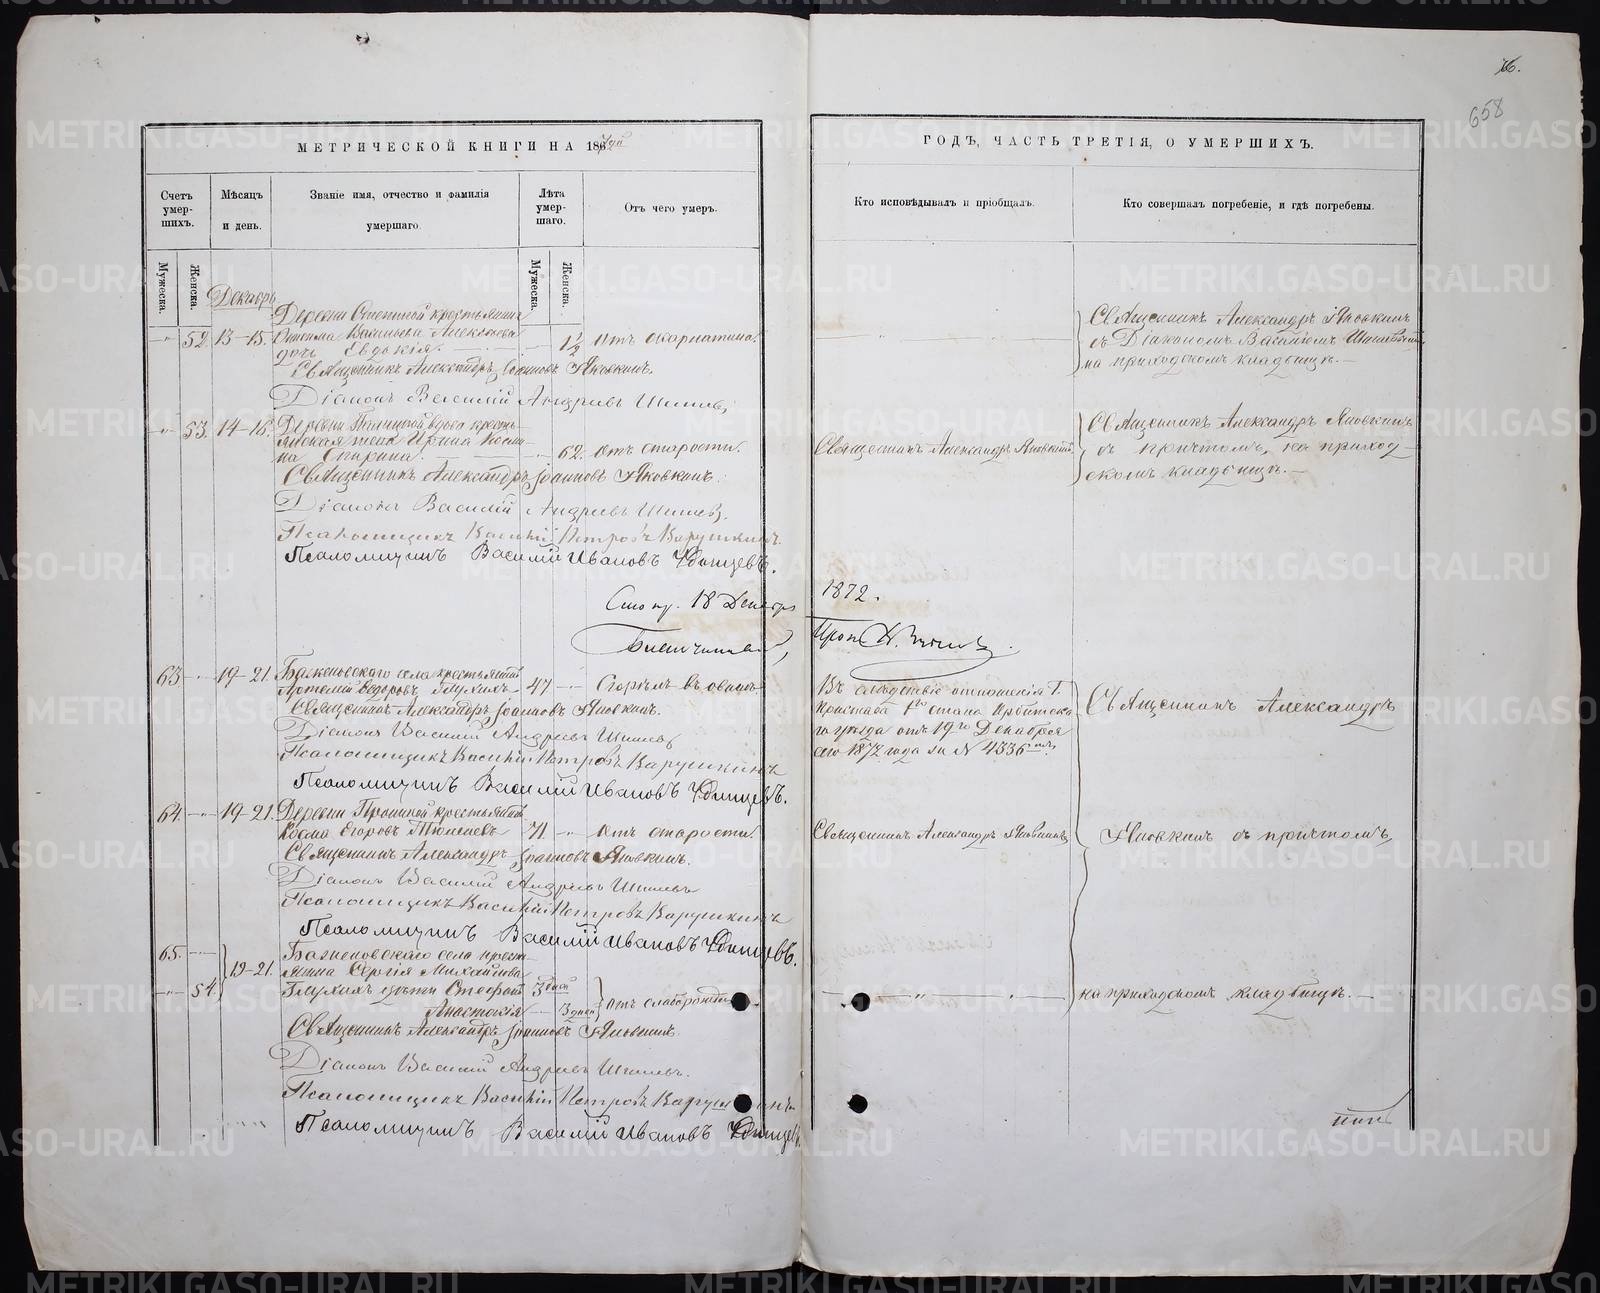 76.
658
МЕТРИЧЕСКОЙ КНИГИ НА 1867
ГОДЪ, ЧАСТЬ ТРЕТІЯ, О УМЕРШИХЪ.
Счетъ умер-шихъ.
Мѣсяцъ и день.
Званіе имя, отчество и фамилія умершаго.
Лѣта умер-шаго.
Отъ чего умеръ.
Кто исповѣдывалъ и пріобщалъ.
Кто совершалъ погребеніе, и гдѣ погребены.
Мужеска.
Женска.
Мужеска.
Женска.
Декабрь
Деревни крестьянина
52 13-15. Васильева Алексѣева 1½ Отъ скарлатины.
дочь Евдокія.
Священникъ Александръ Іоанновъ Яковкинъ.
Діаконъ Василій Андреевъ Шишевъ
Священникъ Александръ Яковкинъ
съ Діакономъ Василіемъ
на приходскомъ кладбищѣ.
53. 14-16. Деревни вдова кресть-
янская жена Ирина Косми-
на 62 Отъ старости.
Священникъ Александръ Яковкинъ
Священникъ Александръ Яковкинъ
съ причтомъ, на приход-
скомъ кладбищѣ.
Священникъ Александръ Іоанновъ Яковкинъ.
Діаконъ Василій Андреевъ Шишевъ.
Псаломщикъ Василій Петровъ Карушкинъ.
Псаломщикъ Василій Ивановъ Удинцевъ.
18 Декабря 1872.
63 19-21. Баженовскаго села крестьянинъ
Артемій Ѳедоровъ Глухихъ 47 Сгорѣлъ въ овинѣ
Священникъ Александръ Іоанновъ Яковкинъ.
Діаконъ Василій Андреевъ Шишевъ
Псаломщикъ Василій Петровъ Карушкинъ
Псаломщикъ Василій Ивановъ Удинцевъ.
Въ слѣдствіе отношенія Г.
Пристава 1го стана Ирбитска-
го уѣзда отъ 19го Декабря
сего 1872 года за № 4336
Священникъ Александръ
64. 19-21. Деревни крестьянинъ
Косма Егоровъ 71 Отъ старости.
Священникъ Александръ Яковкинъ
Яковкинъ съ причтомъ,
Священникъ Александръ Іоанновъ Яковкинъ.
Діаконъ Василій Андреевъ Шишевъ
Псаломщикъ Василій Петровъ Карушкинъ
Псаломщикъ Василій Ивановъ Удинцевъ.
65. 19-21. Баженовскаго села кресть-
янина Сергія Михайлова
54 Глухихъ дѣти Стефанъ 3 дней
Анастасія 3 дней Отъ слаборожденія
на приходскомъ кладбищѣ.
Священникъ Александръ Іоанновъ Яковкинъ.
Діаконъ Василій Андреевъ Шишевъ.
Псаломщикъ Василій Петровъ Карушкинъ
Псаломщикъ Василій Ивановъ Удинцевъ.
METRIKI.GASO-URAL.RU